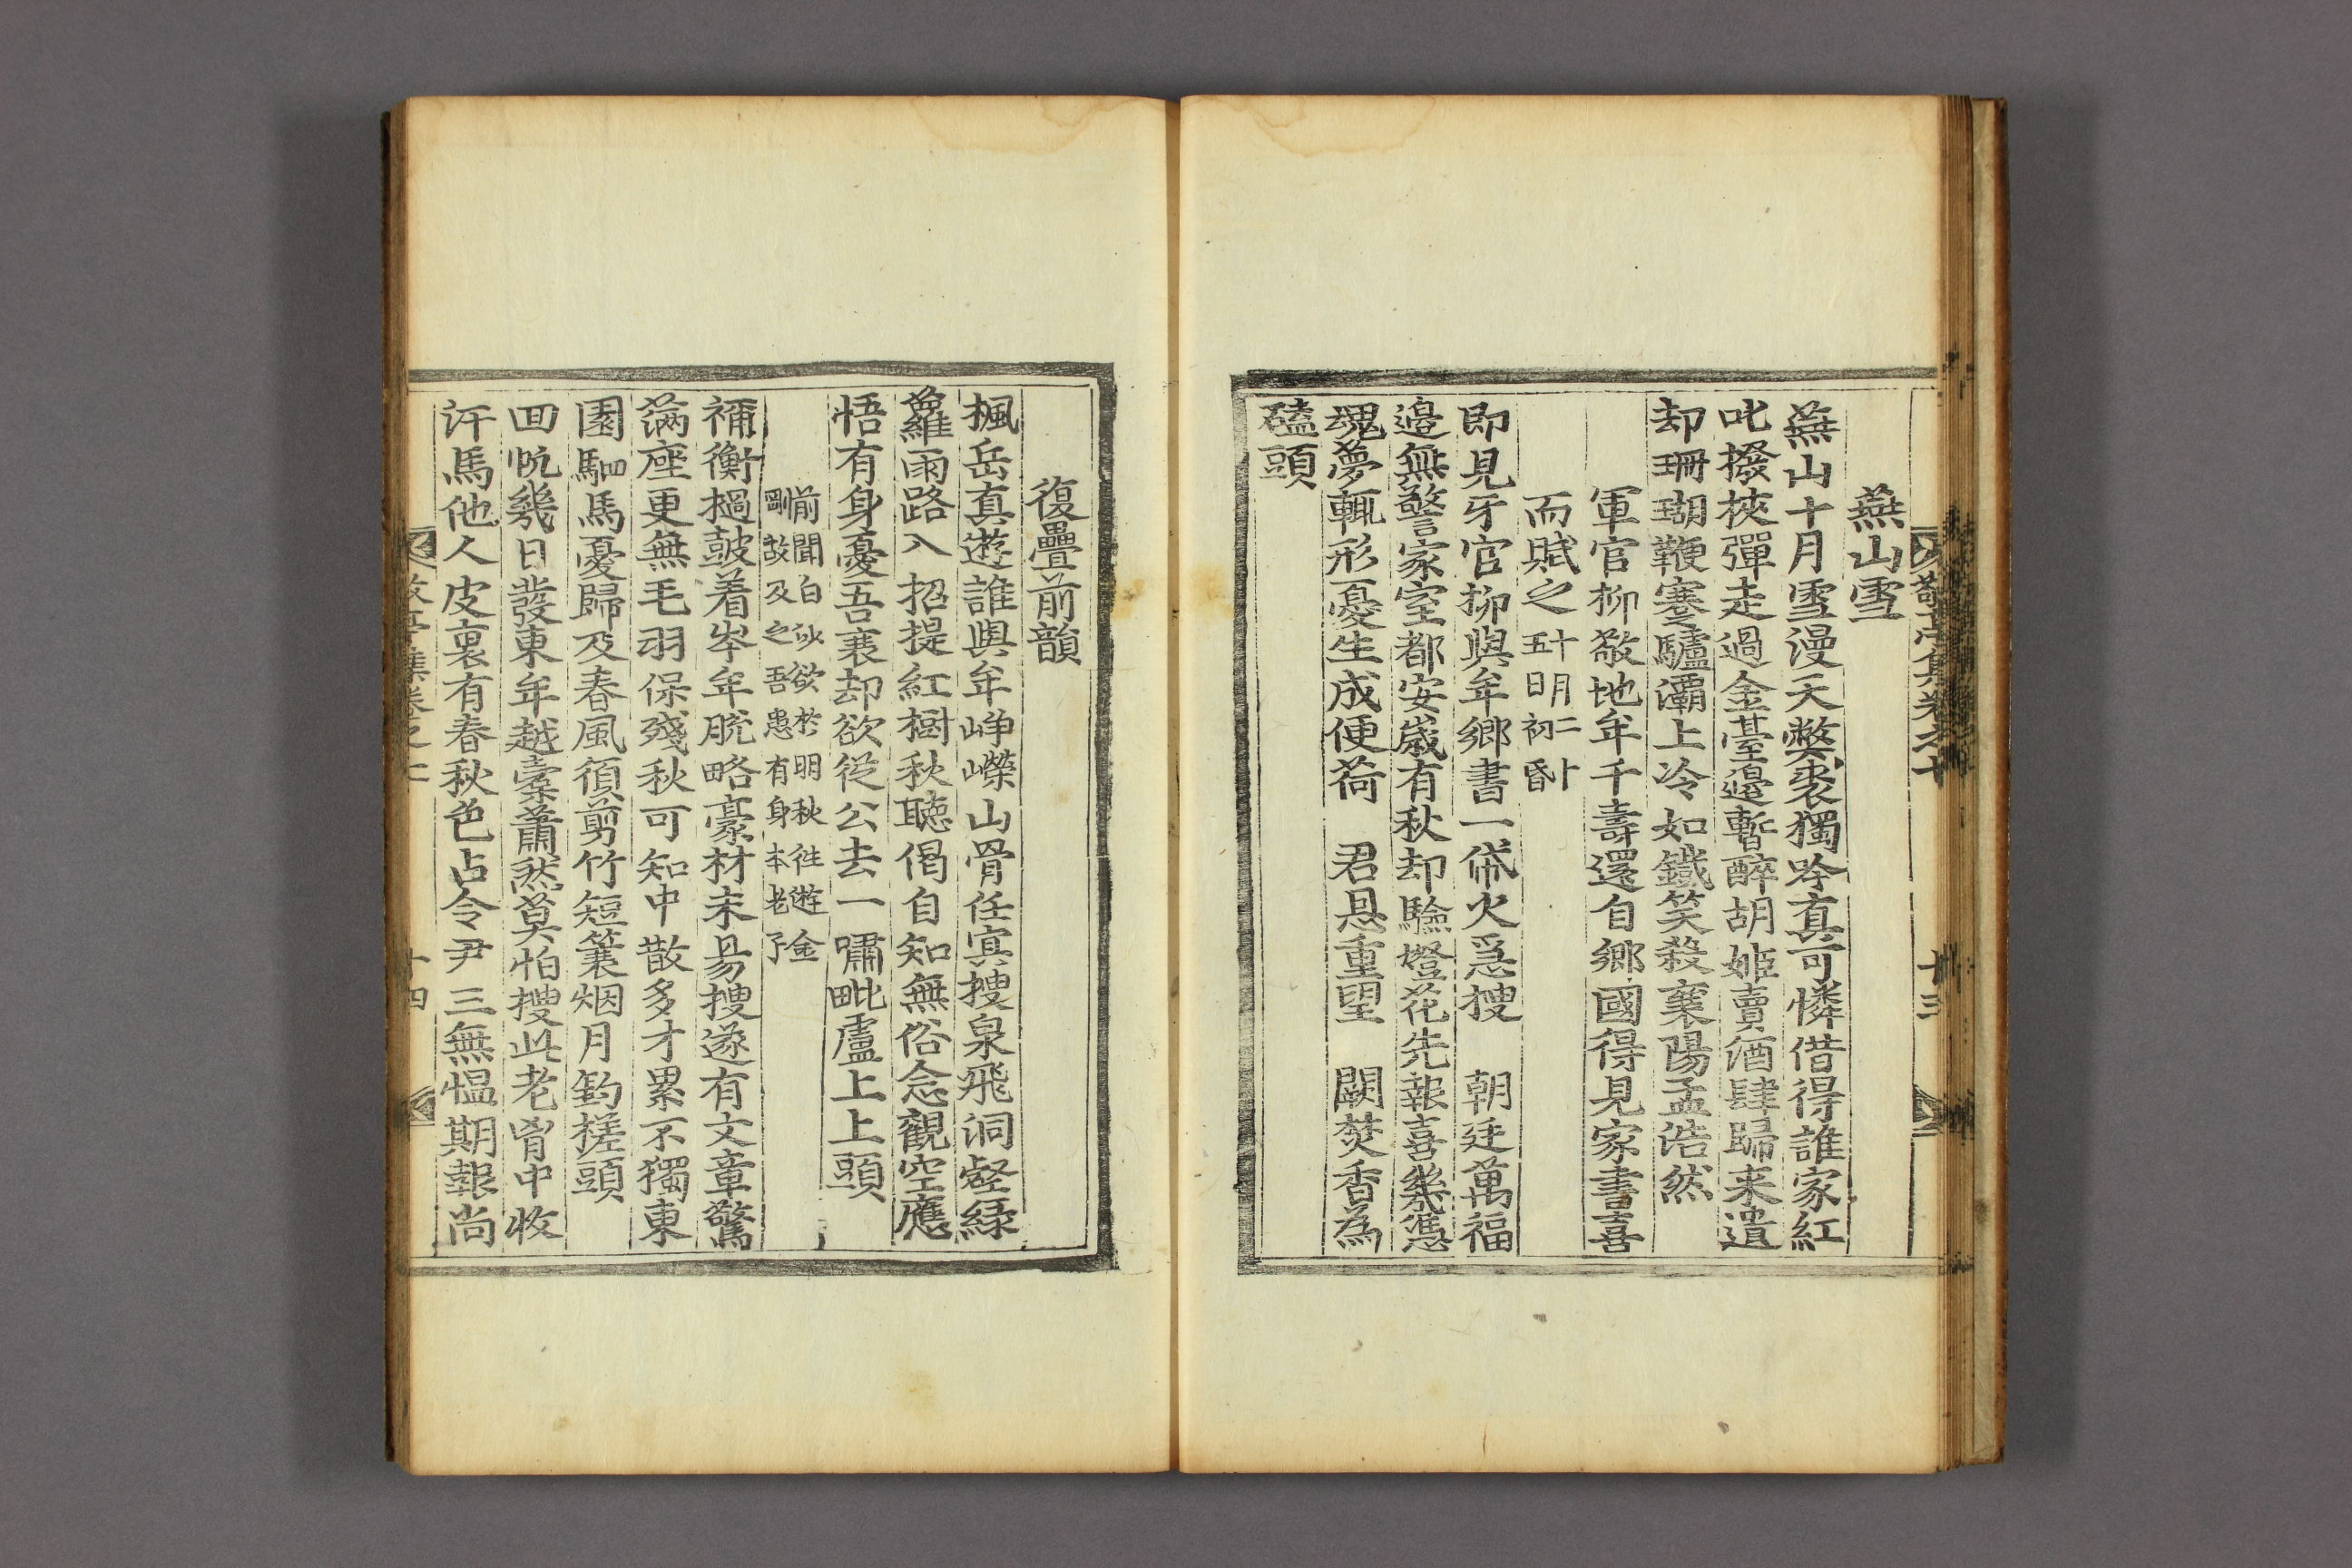 敬亭集卷之十
十三
燕山雪
燕山十月雪漫天弊裘獨吟真可憐借得誰家紅
叱撥挾彈走過金臺邊暫醉胡姬賣酒肆歸来遺
却珊瑚鞭蹇驢灞上冷如鐵笑殺襄陽孟浩然
軍官柳敬地年千壽還自鄉國得見家書喜
而賦之十月二十
五日初昏
即見牙官柳與年鄉書一帒火急搜 朝廷萬福
邊無警家室都安歲有秋却驗燈花先報喜幾憑
魂夢輒形憂生成便荷 君恩重望 闕焚香為
磕頭
復疊前韻
楓岳真遊誰與年崢嶸山骨任冥搜泉飛洞壑緑
蘿雨路入招提紅樹秋聽偈自知無俗念觀空應
悟有身憂吾衰却欲從公去一嘯毗盧上上頭
前聞白沙欲於明秋往遊金
剛故及之吾患有身本老子
禰衡撾鼓着岑年脫略豪材未易搜遂有文章驚
滿座更無毛羽保殘秋可知中散多才累不獨東
園駟馬憂歸及春風須剪竹短簑烟月釣槎頭
回帆幾日發東年越橐蕭然莫怕搜此老胷中收
汗馬他人皮裏有春秋色占令尹三無慍期報尚
十四